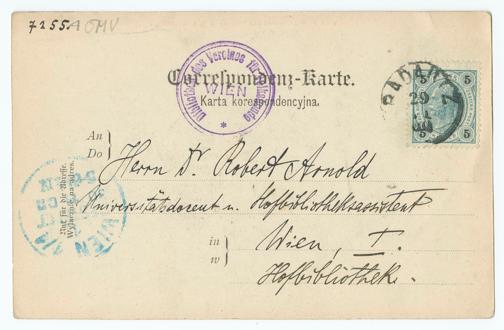 7255A ÖMV
Bibliothek des Vereines für
WIEN
Correspondenz-Karte.
Karta korespondencyjna.
5 5
5 5
29
An
Do
Herrn Dr. Robert Arnold
Universitätsdocent u. Hofbibliotheksassistent
in
w
Wien, I.
Hofbibliothek.
Nur für die Adresse.
Wyłącznie na adres.
WIEN 1/1